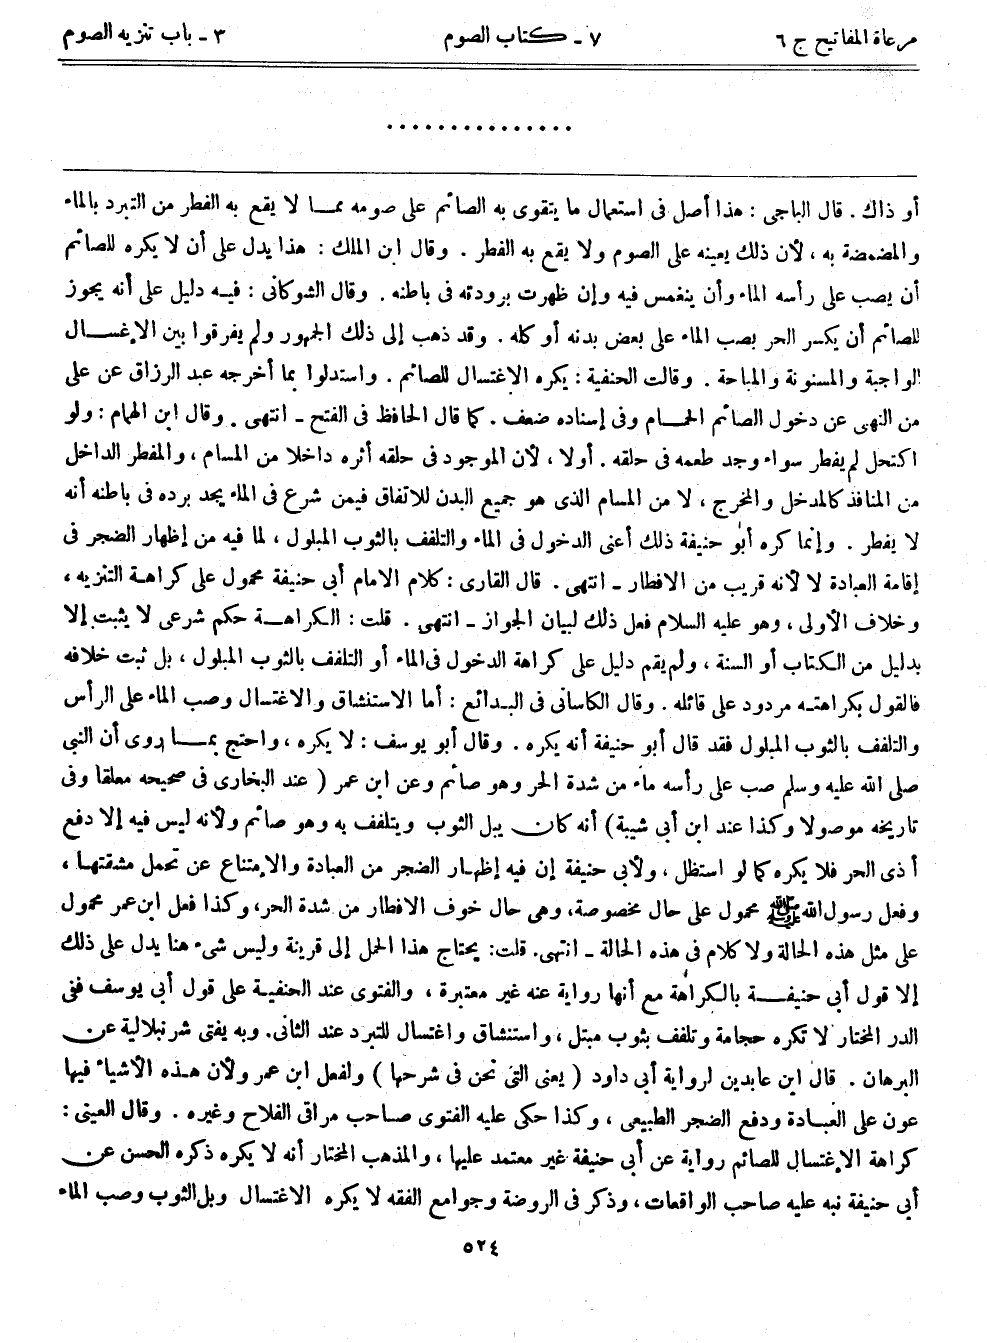 مرعاة المفاتيح ج ٦ ٧ ـ كتاب الصوم ٣ ـ باب تنزيه الصوم
...............
أو ذاك . قال الباجى : هذا أصل فى استعمال ما يتقوى به الصائم على صومه مما لا يقع به الفطر من التبرد بالماء
والمضمضة به ، لأن ذلك يعينه على الصوم ولا يقع به الفطر . وقال ابن الملك : هذا يدل على أن لا يكره للصائم
أن يصب على رأسه الماء وأن ينغمس فيه وإن ظهرت برودته فى باطنه . وقال الشوكانى : فيه دليل على أنه يجوز
للصائم أن يكسر الحر بصب الماء على بعض بدنه أو كله . وقد ذهب إلى ذلك الجمهور ولم يفرقوا بين الإغسال
الواجبة والمسنونة والمباحة . وقالت الحنفية : يكره الاغتسال للصائم . واستدلوا بما أخرجه عبد الرزاق عن على
من النهى عن دخول الصائم الحمام وفى إسناده ضعف . كما قال الحافظ فى الفتح ـ انتهى . وقال ابن الهمام : ولو
اكتحل لم يفطر سواء وجد طعمه فى حلقه . أولا ، لأن الموجود فى حلقه أثره داخلا من المسام ، والمفطر الداخل
من المنافذ كالمدخل والمخرج ، لا من المسام الذى هو جميع البدن للاتفاق فيمن شرع فى الماء يجد برده فى باطنه أنه
لا يفطر . وإنما كره أبو حنيفة ذلك أعنى الدخول فى الماء والتلفف بالثوب المبلول ، لما فيه من إظهار الضجر فى
إقامة العبادة لا لأنه قريب من الافطار ـ انتهى . قال القارى : كلام الامام أبى حنيفة محمول على كراهة التنزيه ،
وخلاف الأولى ، وهو عليه السلام فعل ذلك لبيان الجواز ـ انتهى . قلت : الكراهة حكم شرعى لا يثبت إلا
بدليل من الكتاب أو السنة ، ولم يقم دليل على كراهة الدخول فى الماء أو التلفف بالثوب المبلول ، بل ثبت خلافه
فالقول بكراهته مردود على قائله . وقال الكاسانى فى البدائع : أما الاستنشاق والاغتسال وصب الماء على الرأس
والتلفف بالثوب المبلول فقد قال أبو حنيفة أنه يكره . وقال أبو يوسف : لا يكره ، واحتج بما روى أن النبى
صلى الله عليه وسلم صب على رأسه ماء من شدة الحر وهو صائم وعن ابن عمر ( عند البخارى فى صحيحه معلقا وفى
تاريخه موصولا وكذا عند ابن أبي شيبة ) أنه كان يبل الثوب ويتلفف به وهو صائم ولأنه ليس فيه إلا دفع
أذى الحر فلا يكره كما لو استظل ، ولأبى حنيفة إن فيه إظهار الضجر من العبادة والإمتناع عن تحمل مشقتها ،
وفعل رسول الله ﷺ محمول على حال مخصوصة ، وهى حال خوف الافطار من شدة الحر ، وكذا فعل ابن عمر محمول
على مثل هذه الحالة ولا كلام فى هذه الحالة ـ انتهى . قلت : يحتاج هذا الحمل إلى قرينة وليس شىء هنا يدل على ذلك
إلا قول أبى حنيفة بالكراهة مع أنها رواية عنه غير معتبرة ، والفتوى عند الحنفية على قول أبى يوسف ففى
الدر المختار لا تكره حجامة وتلفف بثوب مبتل ، واستنشاق واغتسال للتبرد عند الثانى . وبه يفتى شرنبلالية عن
البرهان . قال ابن عابدين لرواية أبى داود ( يعنى التى نحن فى شرحها ) ولفعل ابن عمر ولأن هذه الأشياء فيها
عون على العبادة ودفع الضجر الطبيعى ، وكذا حكى عليه الفتوى صاحب مراقى الفلاح وغيره . وقال العينى :
كراهة الإغتسال للصائم رواية عن أبى حنيفة غير معتمد عليها ، والمذهب المختار أنه لا يكره ذكره الحسن عن
أبى حنيفة نبه عليه صاحب الواقعات ، وذكر فى الروضة وجوامع الفقه لا يكره الاغتسال وبل الثوب وصب الماء
٥٢٤